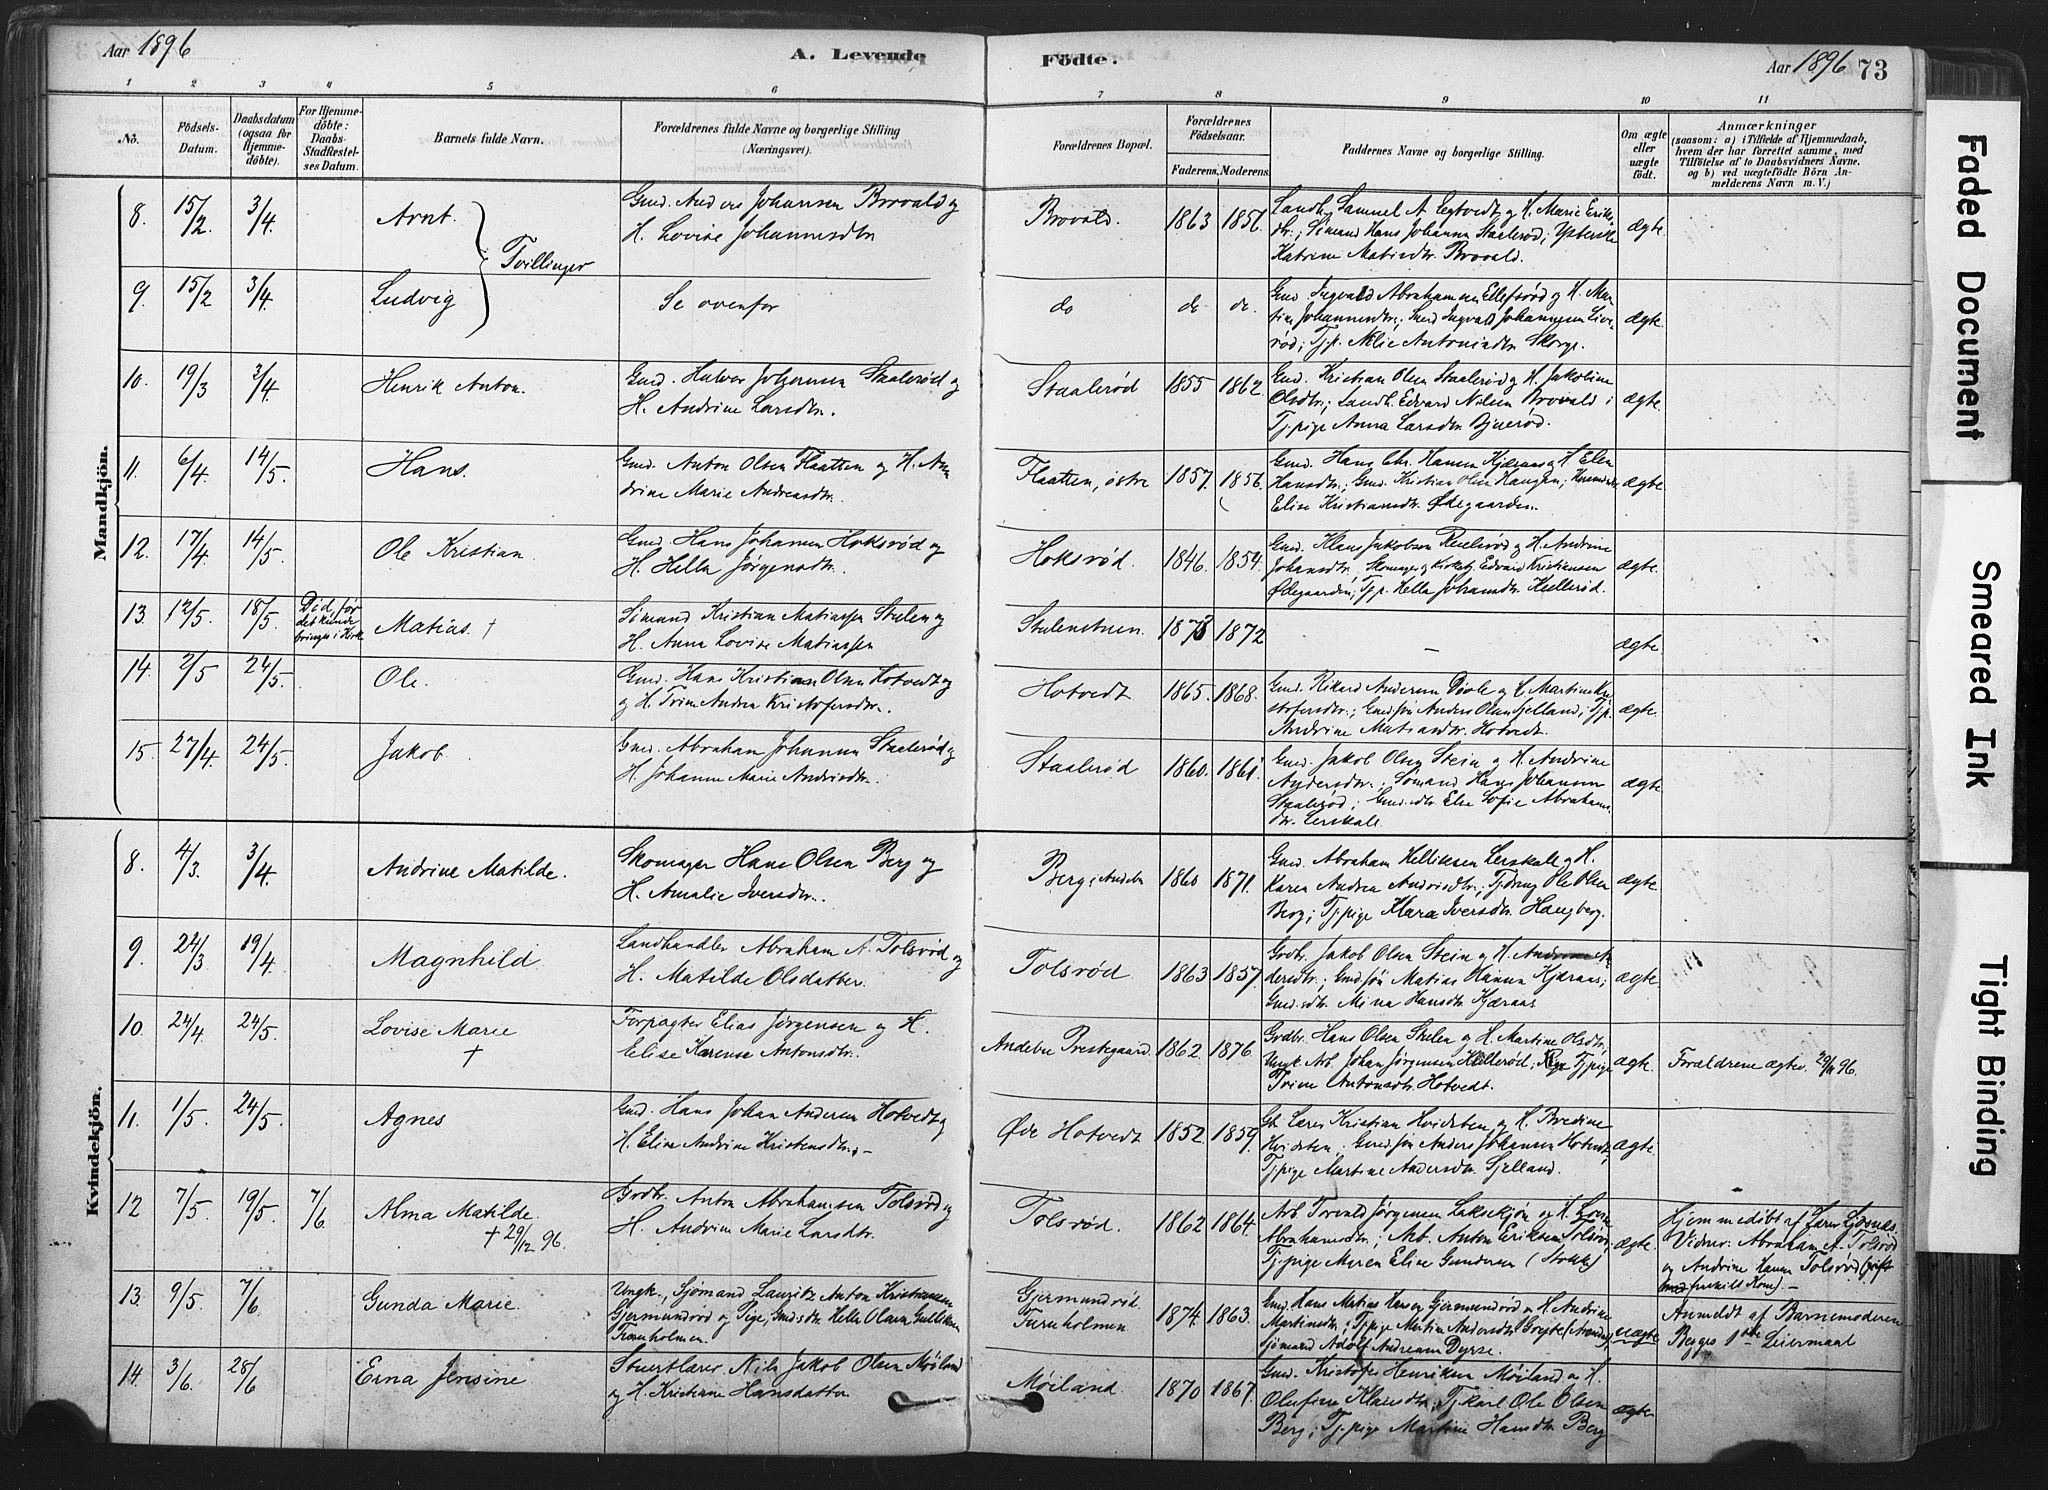 Aar 1896
A. Levende Födte.
Aar 1896 73
1 2 3 4 5 6 7 8 9 10 11
No.
Födsels-Datum.
Daabsdatum (ogsaa for Hjemme-döbte).
For Hjemme-döbte: Daabs-Stadfæstel-ses Datum.
Barnets fulde Navn.
Forældrenes fulde Navne og borgerlige Stilling (Næringsvei).
Forældrenes Bopæl.
Forældrenes Födselsaar.
Faderens. Moderens.
Faddernes Navne og borgerlige Stilling.
Om ægte eller uægte födt.
Anmærkninger
(saasom: a) i Tilfælde af Hjemmedaab, hvem der har forrettet samme, med Tilföielse af to Daabsvidners Navne. og b) ved uægtefödte Börn An-melderens Navn m. V.)
Mandkjön.
8. 15/2 3/4 Arnt. Tvillinger
Gmd. Anders Johansen Brovald og
H. Lovise Johannesdtr
Brovald. 1863 1856.
Landh. Samuel A. og H. Marie Erik-
dtr.; Sömand Hans Johansen Staalerød;
Katrine Matisdtr. Brovald.
ægte.
9. 15/2 3/4 Ludvig
Se ovenfor
do do do.
Gmd. Ingvald Abrahamsen Ellefsrød og H. Mar-
tine Johannesdtr.; Ingvald Johannesen
rød; Tj.p. Antonisdtr Skorge.
ægte.
10. 19/3 3/4 Henrik Anton.
Gmd. Halvor Johansen Staalerød og
H. Andrine Larsdtr.
Staalerød 1855 1862.
Gmd. Kristian Olsen Staalerød og H. Jakoline
Olsdtr.; Landh. Edvard Nilsen Brovald;
Tj.pige Anna Larsdtr Bjuerød.
ægte.
11. 6/4 14/5 Hans.
Gmd. Anton Olsen Flaatten og H. An-
drine Marie Andreasdtr.
Flaatten, østre 1857. 1856.
Gmd. Hans Chr. Hansen Kjæraas og H. Elen
Hansdtr.; Gmd. Kristian Olsen Haugen;
Elise Kristiansdtr. Ødegaarden.
ægte
12. 17/4 14/5 Ole Kristian.
Gmd Hans Johansen Hoksrød og
H. Helle Jørgensdtr.
Hoksrød. 1846. 1854.
Gmd. Klaus Jakobsen og H. Andrine
Johansdtr., Skomager og Kirketj. Edvard Kristiansen
Ødegaarden; Tj.p. Helle Johansdtr. Hellerød.
ægte.
13. 12/5 18/5 Død, før
det kunde
bringes i Kirke
Matias. †
Sömand Kristian Matiassen Stulen og
H. Anna Lovise Matiassen
Stulenstuen. 1873 1872 —
ægte.
14. 2/5 24/5. Ole.
Gmd. Hans Kristian Olsen Hotvedt og
og H. Trine Andrea Kristofersdtr.
Hotvedt 1865. 1868.
Gmd. Rikard Andersen Døvle og H. Martine Kri-
stofersdtr.; Gmdsön Anders Olsen Sjelland; Tj.p.
Andrine Matisdtr. Hotvedt.
ægte.
15. 27/4. 24/5. Jakob.
Gmd. Abraham Johansen Staalerød og
H. Johanne Marie Andrisdtr.
Staalerød 1860. 1861.
Gmd. Jakob Olsen Stein og H. Andrine
Andersdtr.; Sömand Hans Johansen
Staalerød; Gmdsdtr. Else Sofie Abrahams
dtr. Lerskall.
ægte.
Kvindekjön.
8. 4/3. 3/4. Andrine Matilde.
Skomager Hans Olsen Berg og
H. Amalie Iversdtr.
Berg, Andebu 1860 1871.
Gmd. Abraham Helliksen Lerskall og H.
Karen Andrea Andrisdtr.; Tj.dreng Ole Olsen
Berg; Tj.pige Klara Iversdtr. Haugberg.
ægte.
9. 24/3 19/4. Magnhild
Landhandler Abraham A. Tolsrød og
H. Matilde Olsdatter.
Tolsrød 1863 1857
Grdbr. Jakob Olsen Stein og H. Andrine An-
dersdtr.; Gmdsön Matias Hansen Kjæraas;
Gmdsdtr. Mina Hansdtr. Kjæraas
ægte.
10. 24/4 24/5. Lovise Marie †
Forpagter Elias Jørgensen og H.
Elise Karense Antonsdtr.
Andebu Prestegaard. 1862. 1876.
Grdbr. Hans Olsen Stulen og H. Martine Olsdtr.;
Ungk. Arb. Johan Jørgensen Hellerød; Tj.pige
Trine Antonsdtr. Hotvedt.
ægte.
Forældrene ægtev. 96.
11. 1/5 24/5. Agnes
Gmd. Hans Johan Andersen Hotvedt og
H. Eline Andrine Kristensdtr. –
Øde Hotvedt 1852 1859.
Lærer Kristian Hvidsten og H. Bredine
Hvidsten; Gmdsön Anders Johansen Hotvedt;
Tj.pige Martine Andersdtr. Sjelland.
ægte.
12 7/5. 19/5. 7/6 Alma Matilde.
† 29/12 96.
Grdbr. Anton Abrahamsen Tolsrød og
H. Andrine Marie Larsdtr.
Tolsrød. 1862 1864.
Arb. Torvald Jørgensen og H. Lovise
Abrahamsdtr.; Arb. Anton Eriksen Tolsrød;
Tj.pige Maren Elise Gundersen (Stokke)
ægte.
Hjemmedøbt af Lærer
Vidner: Abraham A. Tolsrød
og Andrine Tolsrød (gift
fraskilt Kone). –
13. 9/5. 7/6. Gunda Marie.
Ungk., Sjömand Lauritz Anton Kristiansen
Gjermundrød og Pige, Gmdsdtr. Helle Olava Gulliksen
Furuholmen.
Gjermundrød.
Furuholmen 1874. 1863.
Gmd. Hans Matias Hansen Gjermundrød og H. Andrine
Martinsdtr.; Tj.pige Martine Andersdtr.
Sjömand Adolf Andreassen Dyrsø.
uægte
Anmeldt af Barnemoderen
Begges 1ste Leiermaal
14. 3/6. 28/6 Erna Jensine
Lærer Nils Jakob Olsen Møiland
og H. Kristiane Hansdatter
Møiland 1870 1867.
Gmd. Kristofer Henriksen Møiland og H.
Olufine Klausdtr.; Tj.karl Ole Olsen
Berg; Tj.pige Martine Hansdtr Berg
ægte
Faded Document
Smeared Ink
Tight Binding